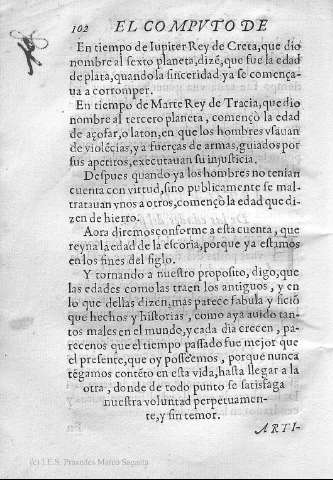 102 EL COMPVTO DE
En tiempo de Iupiter Rey de Creta, que dio
nombre al sexto planeta, dizē, que fue la edad
de plata, quando la sinceridad ya se comença-
ua a corromper.
En tiempo de Marte Rey de Tracia, que dio
nombre al tercero planeta, començò la edad
de açofar, o laton, en que los hombres vsauan
de violēcias, y a fuerças de armas, guiados por
sus apetitos, executauan su injusticia.
Despues quando ya los hombres no tenían
cuenta con virtud, sino publicamente se mal-
tratauan vnos a otros, començò la edad que di-
zen de hierro.
Aora diremos conforme a esta cuenta, que
reyna la edad de la escoria, porque ya estamos
en los fines del siglo.
Y tornando a nuestro proposito, digo, que
las edades como las traen los antiguos, y en
lo que dellas dizen, mas parece fabula y ficiō
que hechos y historias, como aya auido tan-
tos males en el mundo, y cada dia crecen, pa-
recenos que el tiempo passado fue mejor que
el presente, que oy posseemos, porque nunca
tēgamos contēto en esta vida, hasta llegar a la
otra, donde de todo punto se satisfaga
nuestra voluntad perpetuamen-
te, y sin temor.
ARTI-
(c) I.E.S. Praxedes Mateo Sagasta